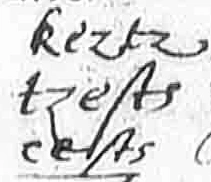 keztz
tzests
cests (